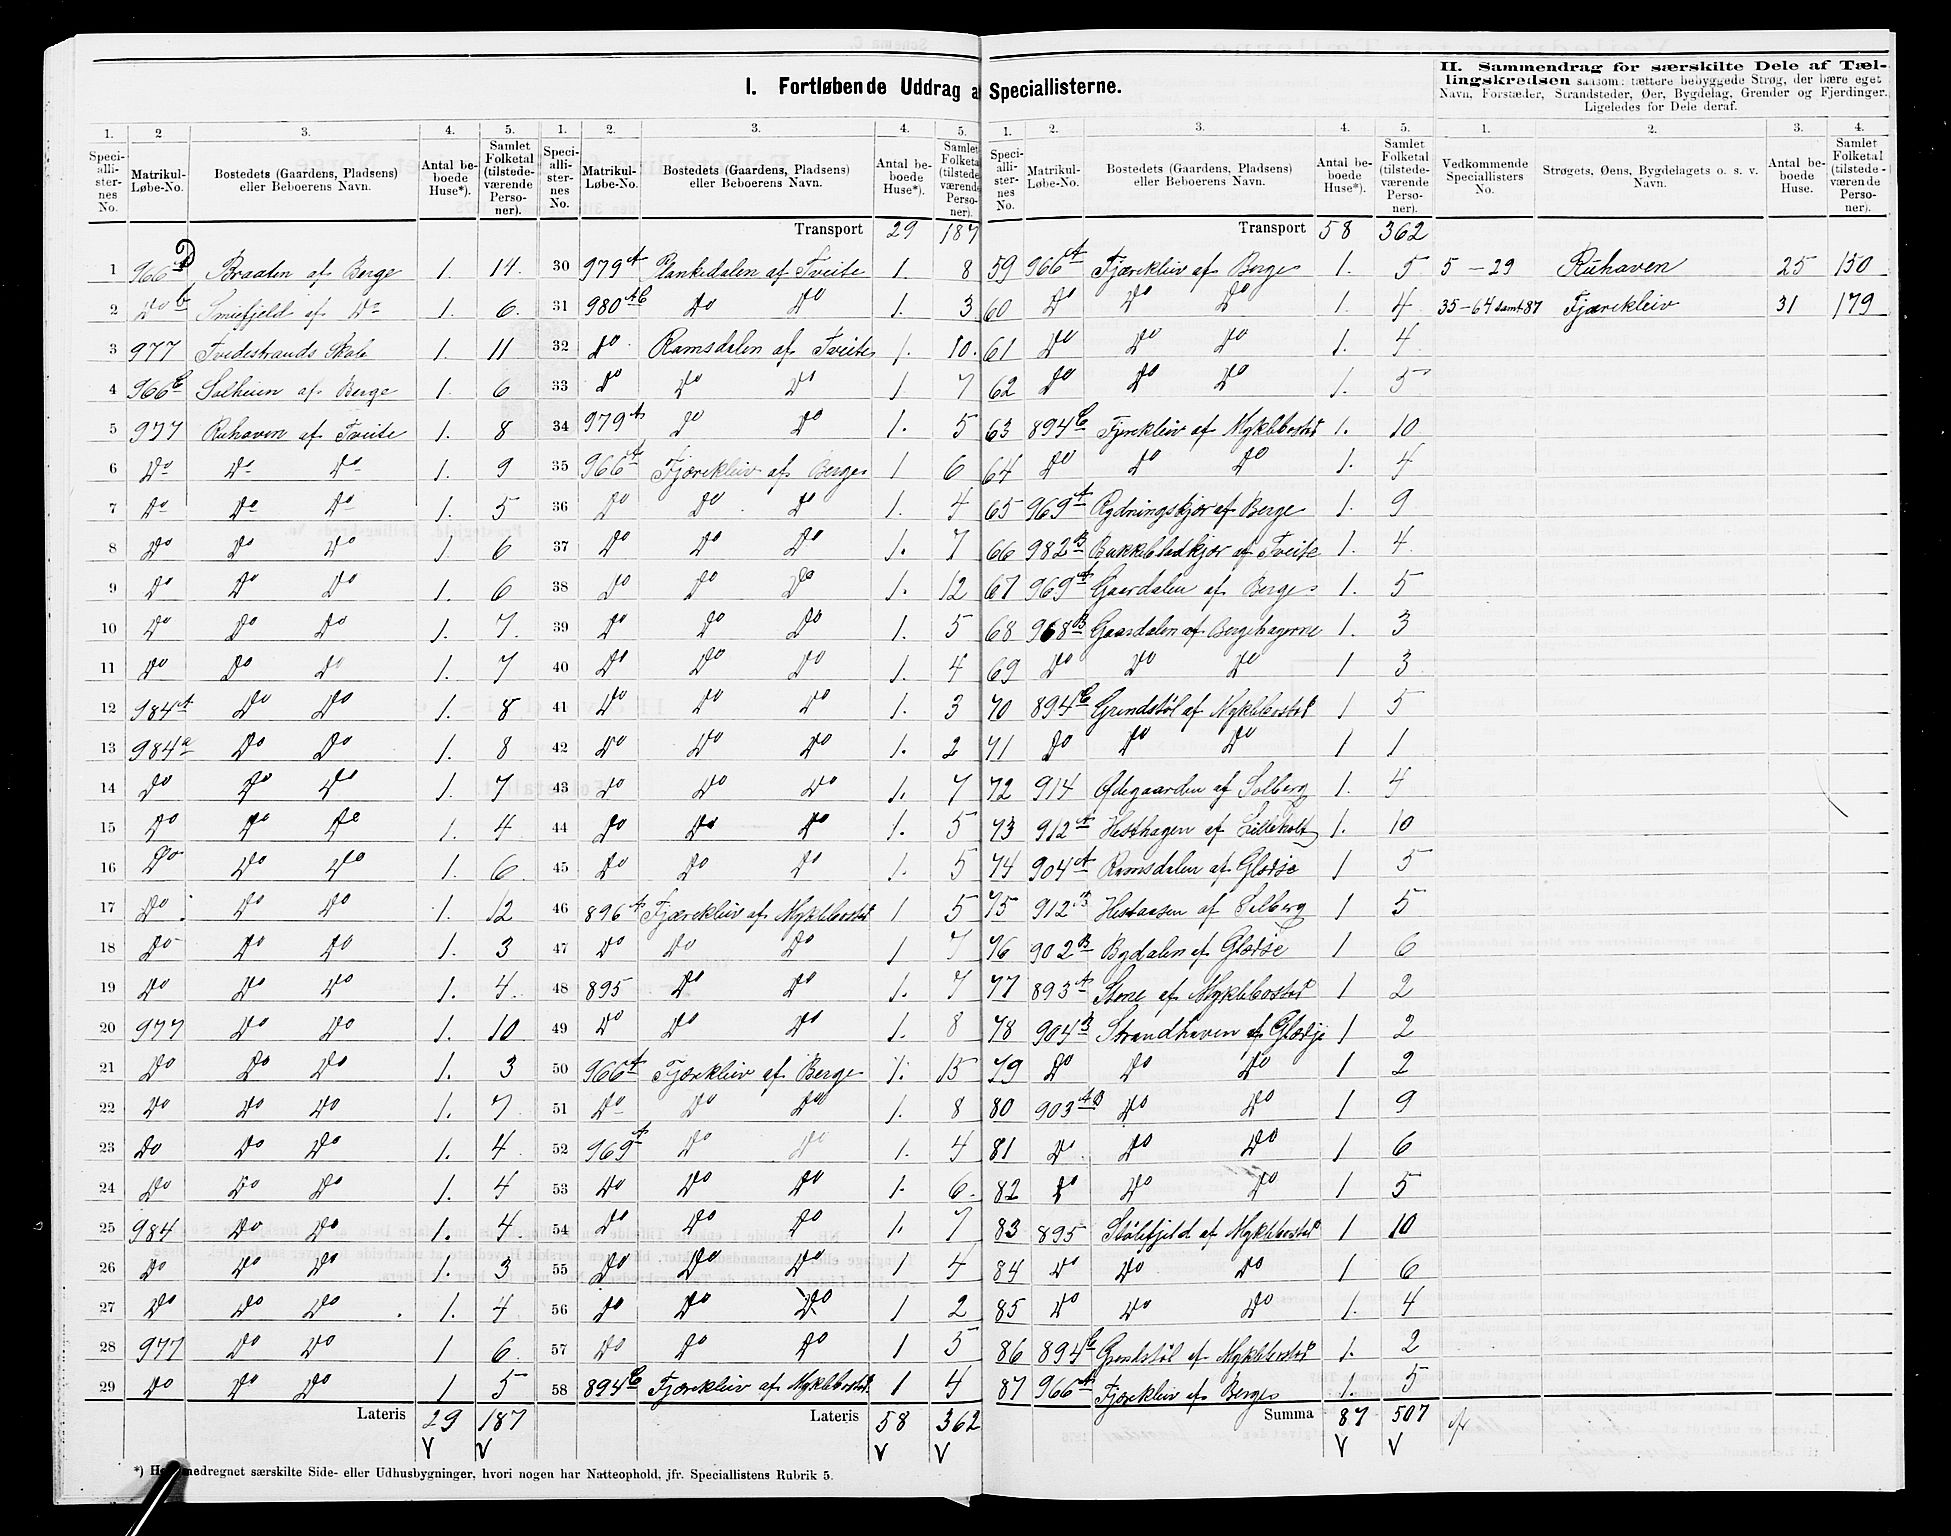 I. Fortløbende Uddrag a Speciallisterne.
II. Sammendrag for særskilte Dele af Tæl-
lingskredsen saasom: tættere bebyggede Strøg, der bære eget
Navn, Forstæder, Strandsteder, Øer, Bygdelag, Grender og Fjerdinger.
Ligeledes for Dele deraf.
1. 2 3. 4. 5.
Speciallisternes No. Matrikul-Løbe-No. Bostedets (Gaardens, Pladsens) eller Beboerens Navn. Antal beboede Huse*). Samlet Folketal (tilstedeværende Personer).
1 966 D Braaten af Berge 1. 14.
2 Do b Smiefjeld af Do 1. 6.
3 977 Tvedestrands Skole 1. 11
4 966 C Solheim af Berge 1. 6
5 977 Ruhaven af Tveite 1. 8
6 Do Do Do 1. 9
7 Do Do Do 1. 5
8 Do Do Do 1. 6
9 Do Do Do 1. 6
10 Do Do Do 1. 7.
11 Do Do Do 1. 7
12 984 A Do Do 1. 8
13 984 a Do Do 1. 8
14 Do Do Do 1. 7
15 Do Do Do 1. 4
16 Do Do Do 1. 6.
17 Do Do Do 1. 12
18 Do Do Do 1. 3
19 Do Do Do 1. 4.
20 977 Do Do 1. 10
21 Do Do Do 1. 3
22 Do Do Do 1. 7
23 Do Do Do 1. 4
24 Do Do Do 1. 4
25 984 Do Do 1. 4.
26 Do Do Do 1. 3
27 Do Do Do 1. 4
28 977 Do Do 1 6.
29 Do Do Do 1 5
Lateris 29 187
V V
1. 2. 3. 4. 5.
Speciallisternes No. Matrikul-Løbe-No. Bostedets (Gaardens, Pladsens) eller Beboerens Navn. Antal beboede Huse*). Samlet Folketal (tilstedeværende Personer).
Transport 29 187
30 979 A Plankedalen af Tveite 1. 8
31 980 AC Do Do 1. 3
32 Do Ramsdalen af Tveite 1. 10.
33 Do Do Do 1 7
34 979 A Do Do 1. 5
35 966 A Fjærekleiv af Berge 1 6
36 Do Do Do 1. 4
37 Do Do Do 1. 7
38 Do Do Do 1. 12
39 Do Do Do 1. 5
40 Do Do Do 1. 4
41 Do Do Do 1. 3
42 Do Do Do 1. 2
43 Do Do Do 1. 7
44 Do Do Do 1. 5
45 Do Do Do 1. 5
46 896 A Fjærekleiv af Myklebostad 1 5
47 Do Do Do 1 7
48 895 Do Do 1. 7
49 Do Do Do 1. 8
50 966 A Fjærekleiv af Berge 1. 15
51 Do Do Do 1. 8
52 969 A Do Do 1. 4
53 Do Do Do 1. 6.
54 Do Do Do 1. 7
55 Do Do Do 1 4
56 Do Do Do 1 2
57 Do Do Do 1 5
58 894 C Fjærekleiv af Myklebostad 1 4
Lateris 58 362
V V
*) medregnet særskilte Side- eller Udhusbygninger, hvori nogen har Natteophold, jfr. Speciallistens Rubrik 5.
1. 2. 3. 4. 5.
Speciallisternes No. Matrikul-Løbe-No. Bostedets (Gaardens, Pladsens) eller Beboerens Navn. Antal beboede Huse*). Samlet Folketal (tilstedeværende Personer).
Transport 58 362
59 966 A Fjærekleiv af Berge 1. 5
60 Do Do Do 1. 4
61 Do Do Do 1. 4
62 Do Do Do 1. 5
63 894 C Fjærekleiv af Myklebostad 1. 10
64 Do Do Do 1. 4
65 969 A Rydningskjær af Berge 1. 9
66 982 B af Tveite 1. 4.
67 969 A Gaardalen af Berge 1. 5
68 968 B Gaardalen af Bergehagerne 1. 3
69 Do Do Do 1 3
70 894 C Grundstøl af Myklebostad 1 5
71 Do Do Do 1 1
72 914 Ødegaarden af Solberg 1. 4
73 912 A Hesthagen af Lilleholt 1. 10
74 904 A Ramsdalen af Glødsje 1 5
75 912 B Hestaasen af Solberg 1 5
76 902 B Bydalen af Glødsje 1 6
77 893 A Stene af Myklebostad 1 2
78 904 B Strandhaven af Glødsje 1 2
79 Do Do Do 1 2
80 903 AB Do Do 1 9
81 Do Do Do 1 6
82 Do Do Do 1 5
83 895 Stølefjeld af Myklebostad 1 10
84 Do Do Do 1 6
85 Do Do Do 1. 4
86 894 C Grundstøl af Myklebostad 1. 2
87 966 A Fjærekleiv af Berge 1. 5
Summa 87 507
V V
1. 2. 3. 4.
Vedkommende Speciallisters No. Strøgets, Øens, Bygdelagets o. s. v. Navn. Antal beboede Huse. Samlet Folketal (tilstedeværende Personer).
5 – 29 Ruhaven 25 150
35 – 64 samt 87 Fjærekleiv 31 179